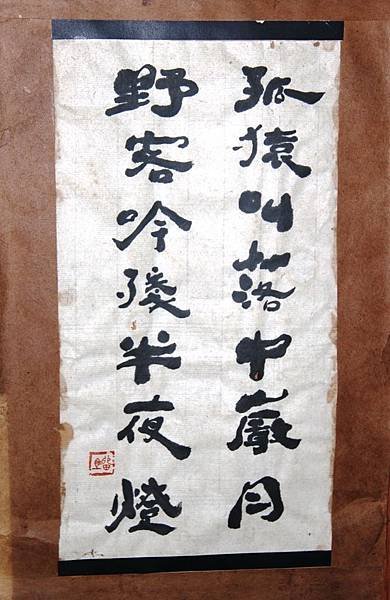 孤猿叫落中巖月
野客吟殘半夜燈